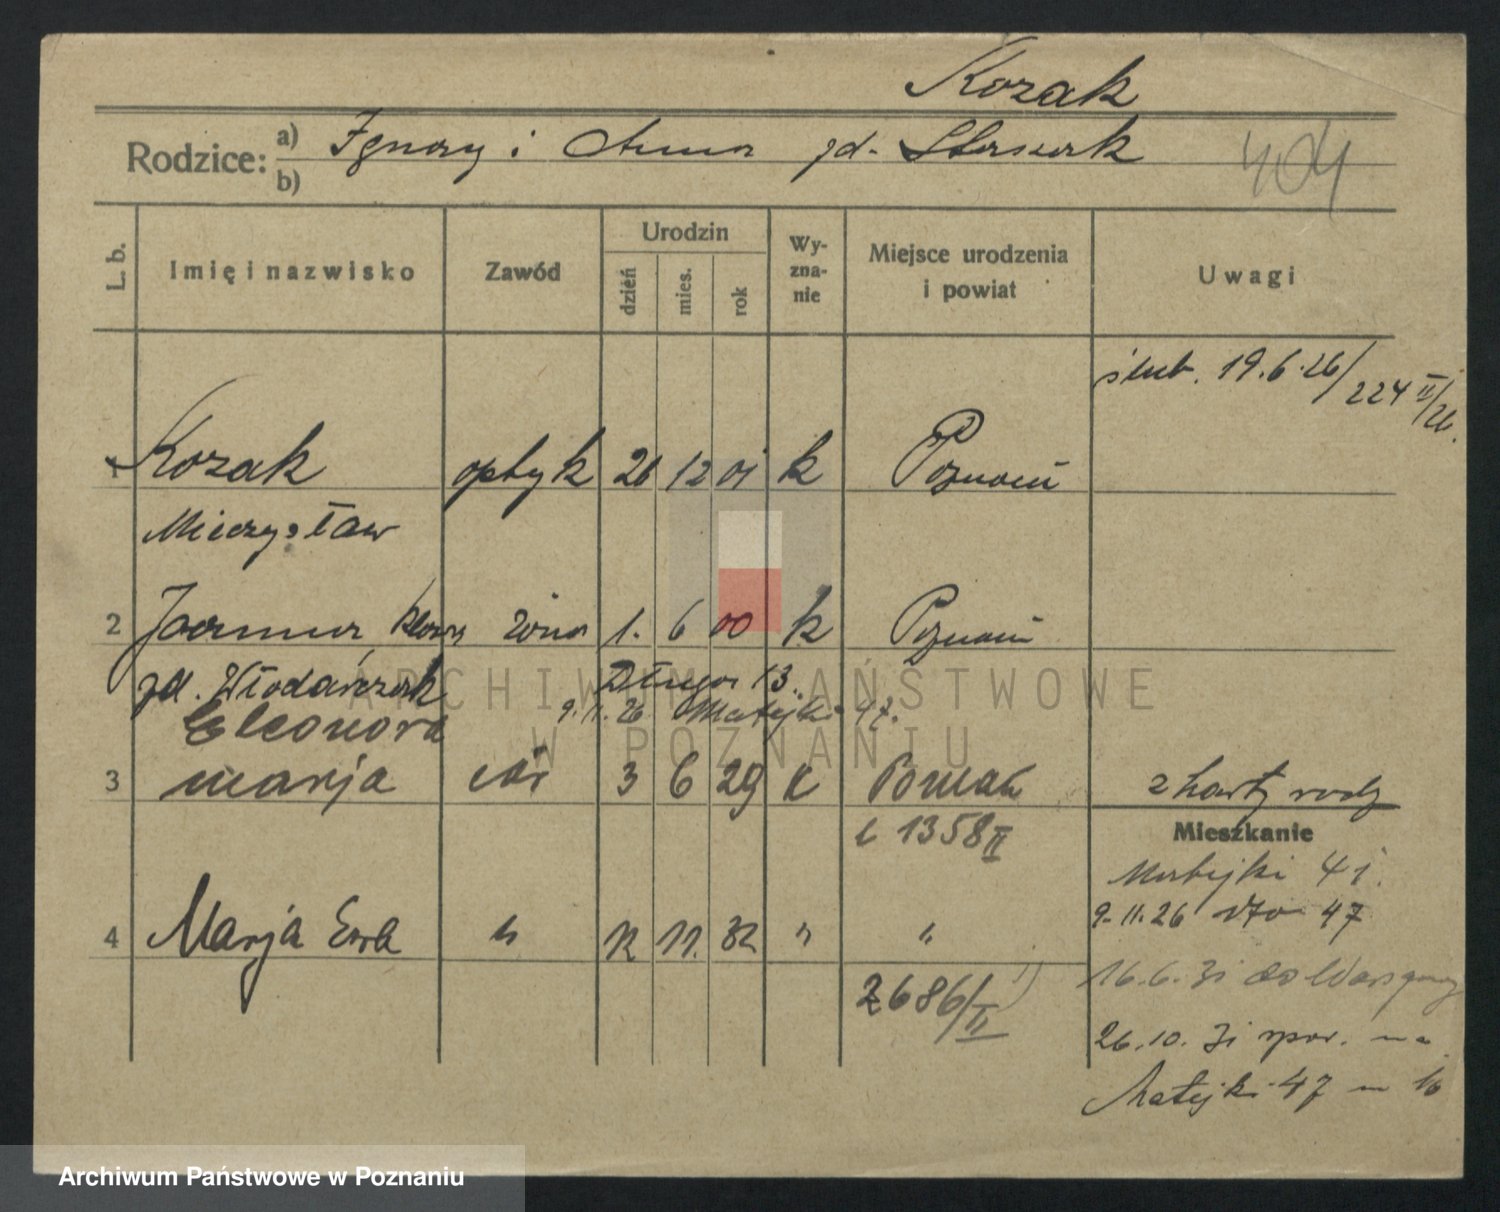 Kozak
Rodzice: a) Ignacy i Anna zd.
b)
L. b. Imię i nazwisko Zawód Urodzin dzień mies. rok Wy-zna-nie Miejsce urodzenia i powiat Uwagi
ślub. 19.6.26/224 II/26.
1 Kozak optyk 26 12 01 k Poznań
Mieczysław
2 Joanna żona 1. 6 00 k Poznań
zd. Włodarczak Długa 13.
Eleonora 9.11.26 Matejki 47.
3 Marja cór 3 6 29 k Poznań z karty rodz
L 1358 II
Mieszkanie
Matejki 41.
4 Marja Ewa " 12 11. 32 " "
9.11.26 47
2686/II
16.6.31 do
26.10.31 spow. na
Matejki 47 m 16
ARCHIWUM PAŃSTWOWE
W POZNANIU
Archiwum Państwowe w Poznaniu